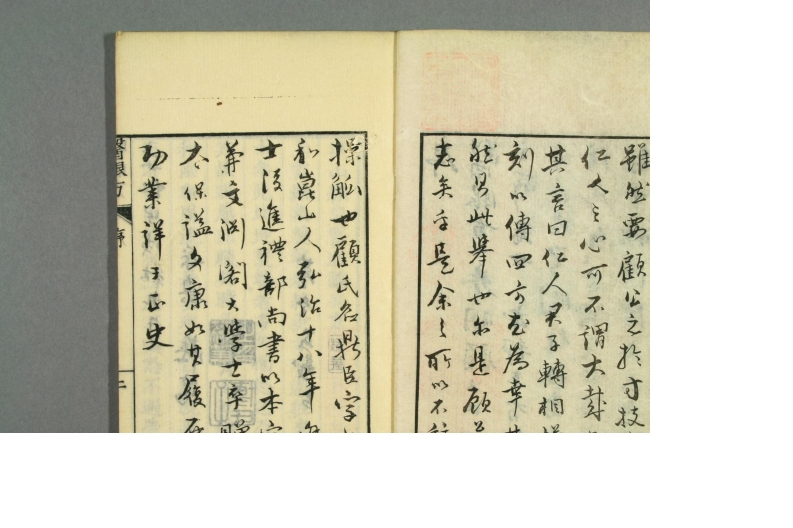 雖然要顧公之於方技
仁人之心可不謂大哉
其言曰仁人君子轉相
刻以傳四方尤為幸
然則此舉也亦是顧
志矣乎是余之所以不
操觚也顧氏名鼎臣字
和崑山人弘治十八年
士後進禮部尚書以本
兼文淵閣大學士卒贈
太保謚文康如其履歷
功業詳于正史
醫眼方
序
二